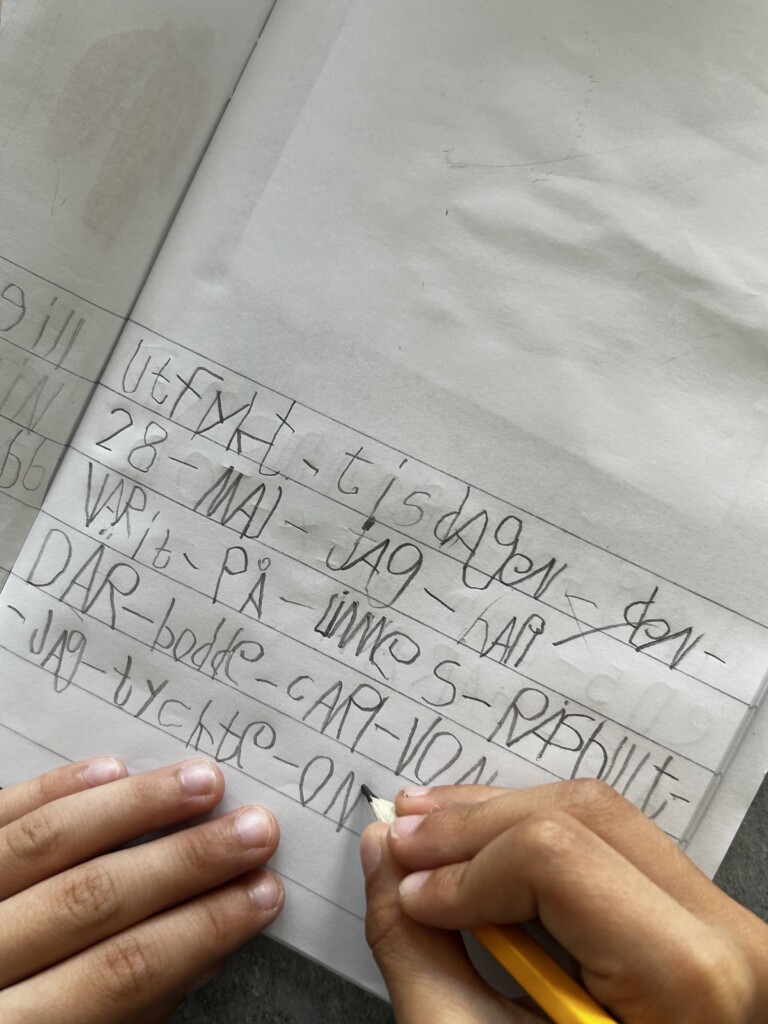 gill
iN
bb
UtFykt - tisdAgeN - deN -
28 - MAJ - JAg - hAR
VARit - PÅ - liNNeS - RåShUlt -
DÄR - bodde - cARl - VON
- JAg - tyckte - ON